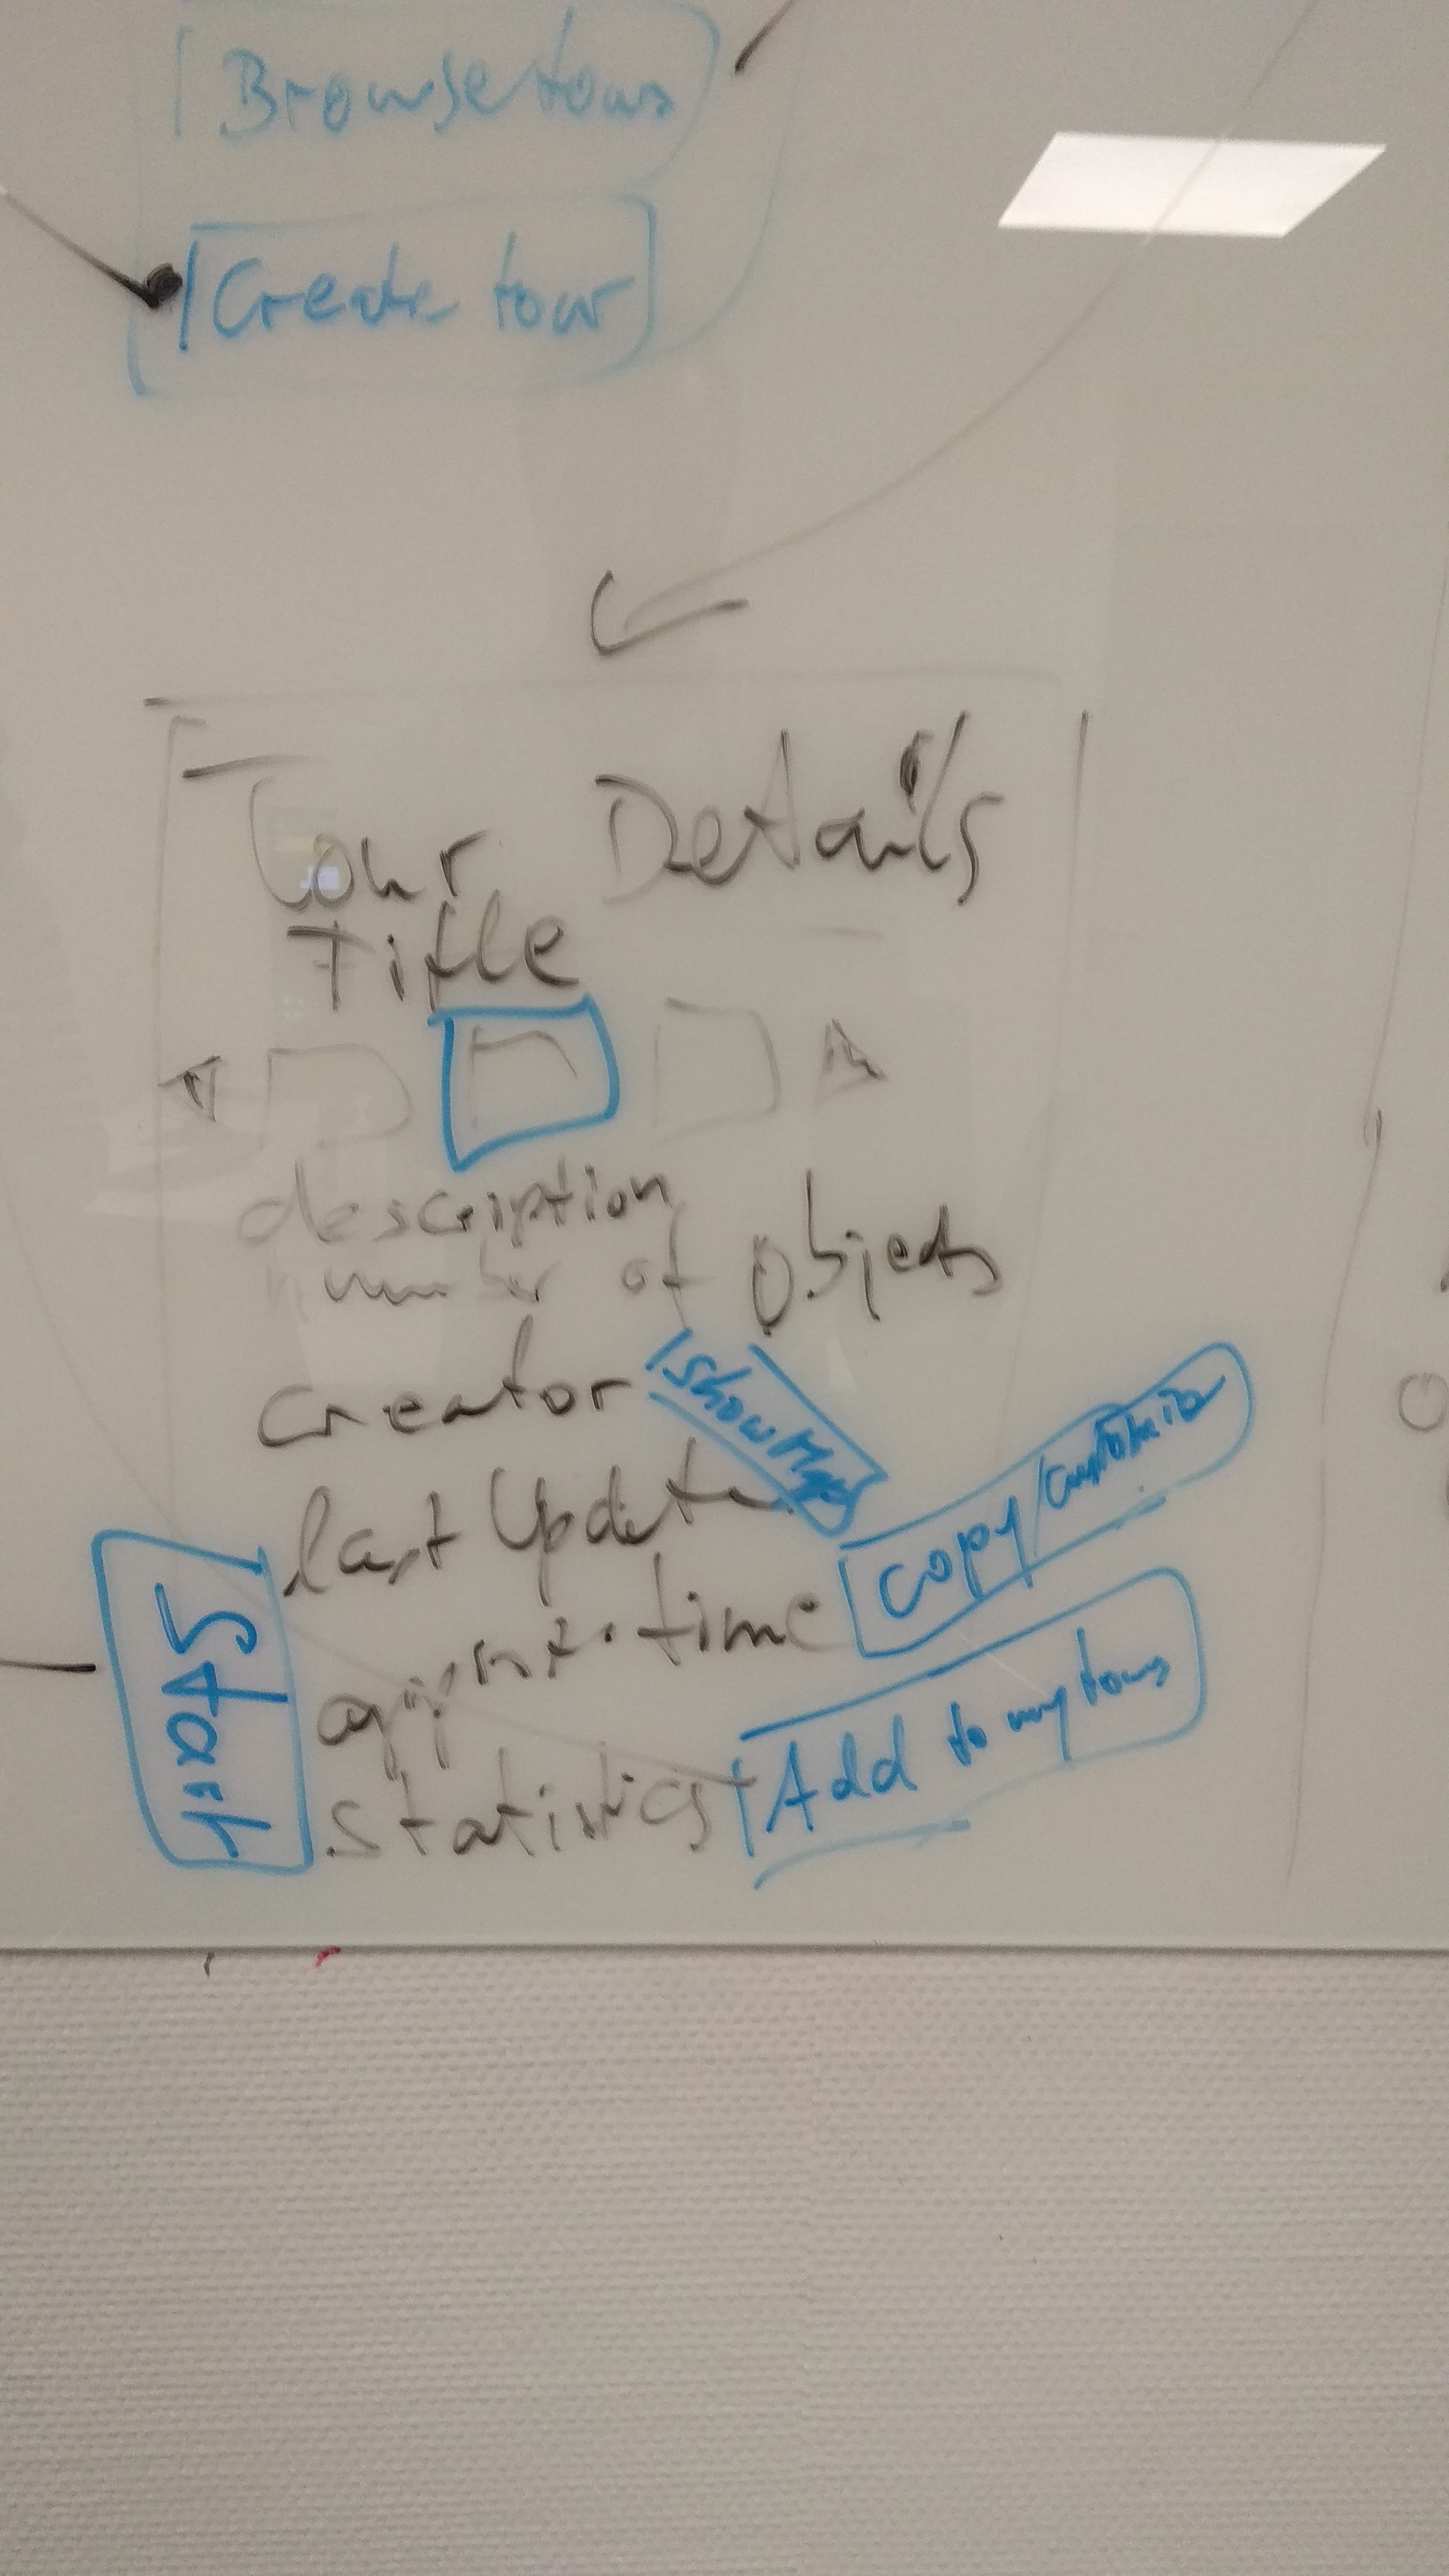 Browse tours
Create tour
Tour Details
Title
description
number of objects
creator
Show Map
last Update
copy/customize
approx. time
Start
statistics
Add to my tours